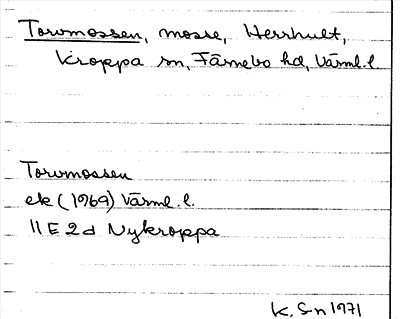 Torvmossen, mosse, Herrhult,
Kroppa sn, Färnebo hd, Värml. l.
Torvmossen
ek (1969) Värml. l.
11 E 2d Nykroppa
K. Sn 1971